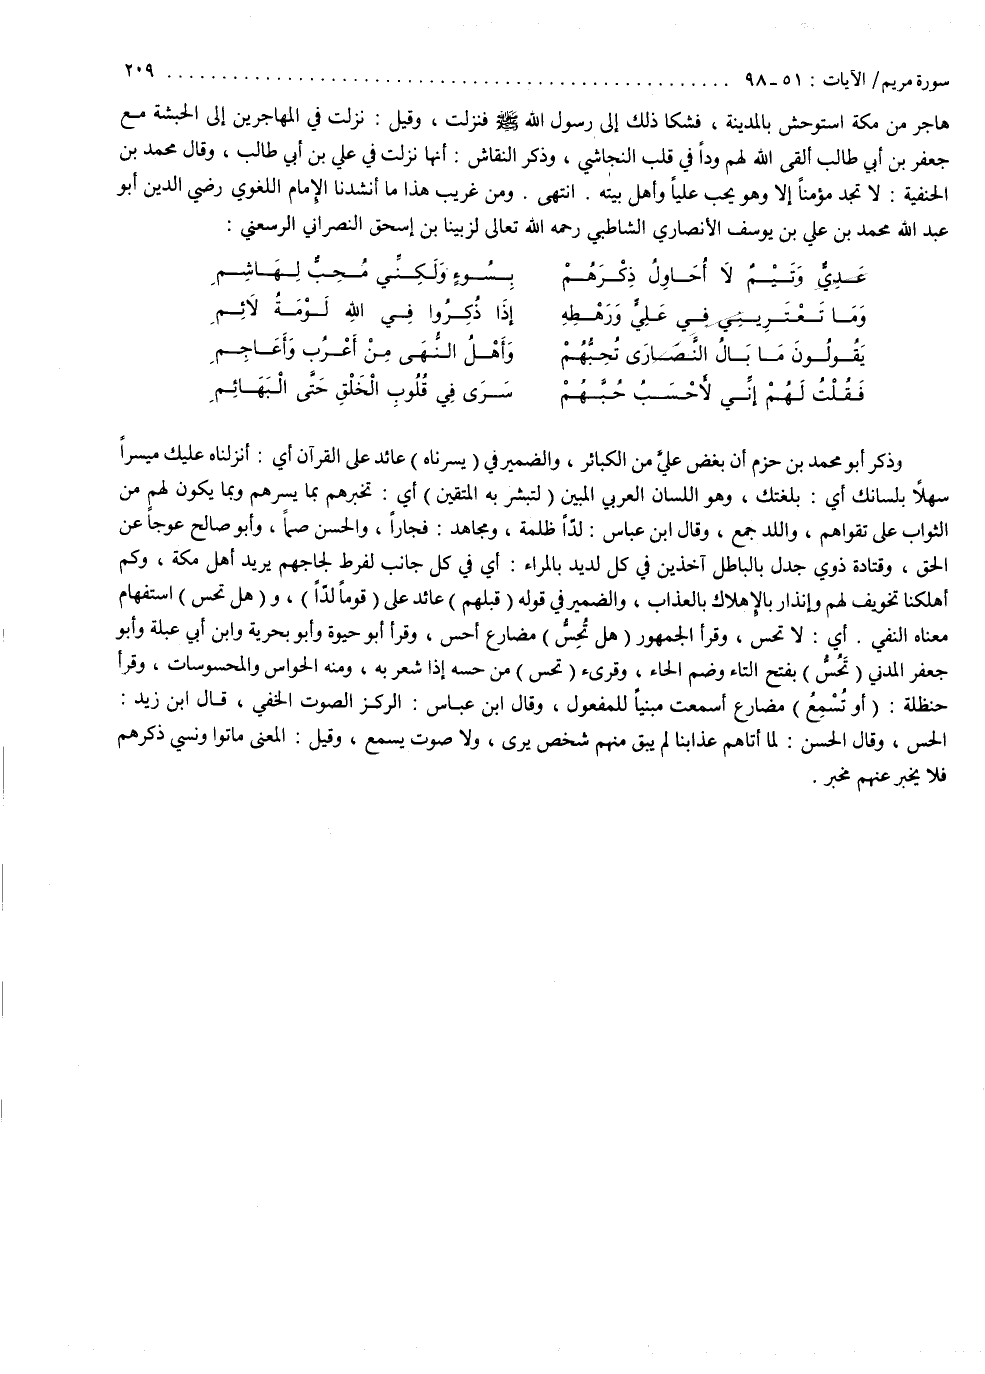 سورة مريم / الآيات : ٥١ـ٩٨ ........................................................ ٢٠٩
هاجر من مكة استوحش بالمدينة ، فشكا ذلك إلى رسول الله ﷺ فنزلت ، وقيل : نزلت في المهاجرين إلى الحبشة مع
جعفر بن أبي طالب ألقى الله لهم وداً في قلب النجاشي ، وذكر النقاش : أنها نزلت في علي بن أبي طالب ، وقال محمد بن
الحنفية : لا تجد مؤمناً إلا وهو يحب علياً وأهل بيته . انتهى . ومن غريب هذا ما أنشدنا الإمام اللغوي رضي الدين أبو
عبد الله محمد بن علي بن يوسف الأنصاري الشاطبي رحمه الله تعالى لزبينا بن إسحق النصراني الرسعني :
عَـدِيٌّ وَتَـيْـمٌ لَا أُحَـاوِلُ ذِكْـرَهُـمْ بِـسُـوءٍ وَلَـكِـنِّـي مُـحِـبٌّ لِـهَـاشِـمِ
وَمَـا تَـعْـتَـرِيـنِي فِـي عَـلِيٍّ وَرَهْـطِهِ إِذَا ذُكِـرُوا فِـي اللهِ لَـوْمَـةُ لَائِـمِ
يَقُـولُـونَ مَـا بَـالُ النَّـصَـارَى تُحِبُّهُمْ وَأَهْـلُ النُّـهَـى مِـنْ أَعْـرُبٍ وَأَعَـاجِـمِ
فَـقُـلْتُ لَـهُـمْ إِنِّـي لَأَحْـسَـبُ حُـبَّـهُـمْ سَـرَى فِي قُلُوبِ الْخَلْقِ حَتَّى الْبَهَائِـمِ
وذكر أبو محمد بن حزم أن بغض عليٍّ من الكبائر ، والضمير في ( يسرناه ) عائد على القرآن أي : أنزلناه عليك ميسراً
سهلًا بلسانك أي : بلغتك ، وهو اللسان العربي المبين ( لتبشر به المتقين ) أي : تخبرهم بما يسرهم وبما يكون لهم من
الثواب على تقواهم ، واللد جمع ، وقال ابن عباس : لدّاً ظلمة ، ومجاهد : فجاراً ، والحسن صماً ، وأبو صالح عوجاً عن
الحق ، وقتادة ذوي جدل بالباطل آخذين في كل لديد بالمراء : أي في كل جانب لفرط لجاجهم يريد أهل مكة ، وكم
أهلكنا تخويف لهم وإنذار بالإهلاك بالعذاب ، والضمير في قوله ( قبلهم ) عائد على ( قوماً لدّاً ) ، و ( هل تحس ) استفهام
معناه النفي . أي : لا تحس ، وقرأ الجمهور ( هل تُحِسُّ ) مضارع أحس ، وقرأ أبو حيوة وأبو بحرية وابن أبي عبلة وأبو
جعفر المدني ( تَحُسُّ ) بفتح التاء وضم الحاء ، وقرىء ( تحس ) من حسه إذا شعر به ، ومنه الحواس والمحسوسات ، وقرأ
حنظلة : ( أو تُسْمِعُ ) مضارع أسمعت مبنياً للمفعول ، وقال ابن عباس : الركز الصوت الخفي ، قال ابن زيد :
الحس ، وقال الحسن : لما أتاهم عذابنا لم يبق منهم شخص يرى ، ولا صوت يسمع ، وقيل : المعنى ماتوا ونسي ذكرهم
فلا يخبر عنهم مخبر .